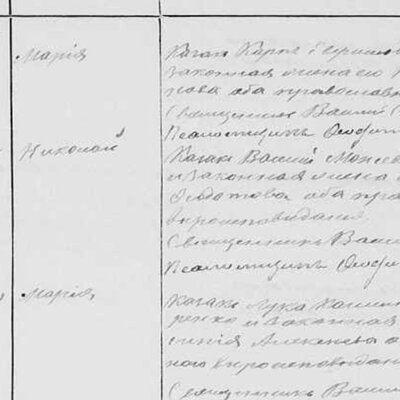 Марія
Казак Карп Герасим
законная жена его
пова оба православн
Священник Васил
Псаломщикъ Феофи
Николай
Казак Василій Моисе
и законная жена
Федотова оба пра
вероисповедания
Священникъ Васи
Псаломщикъ Феофи
Марія
казакъ Лука Калин
ренко и законная
Алексеева о
ного вероисповедан
Священникъ Васи